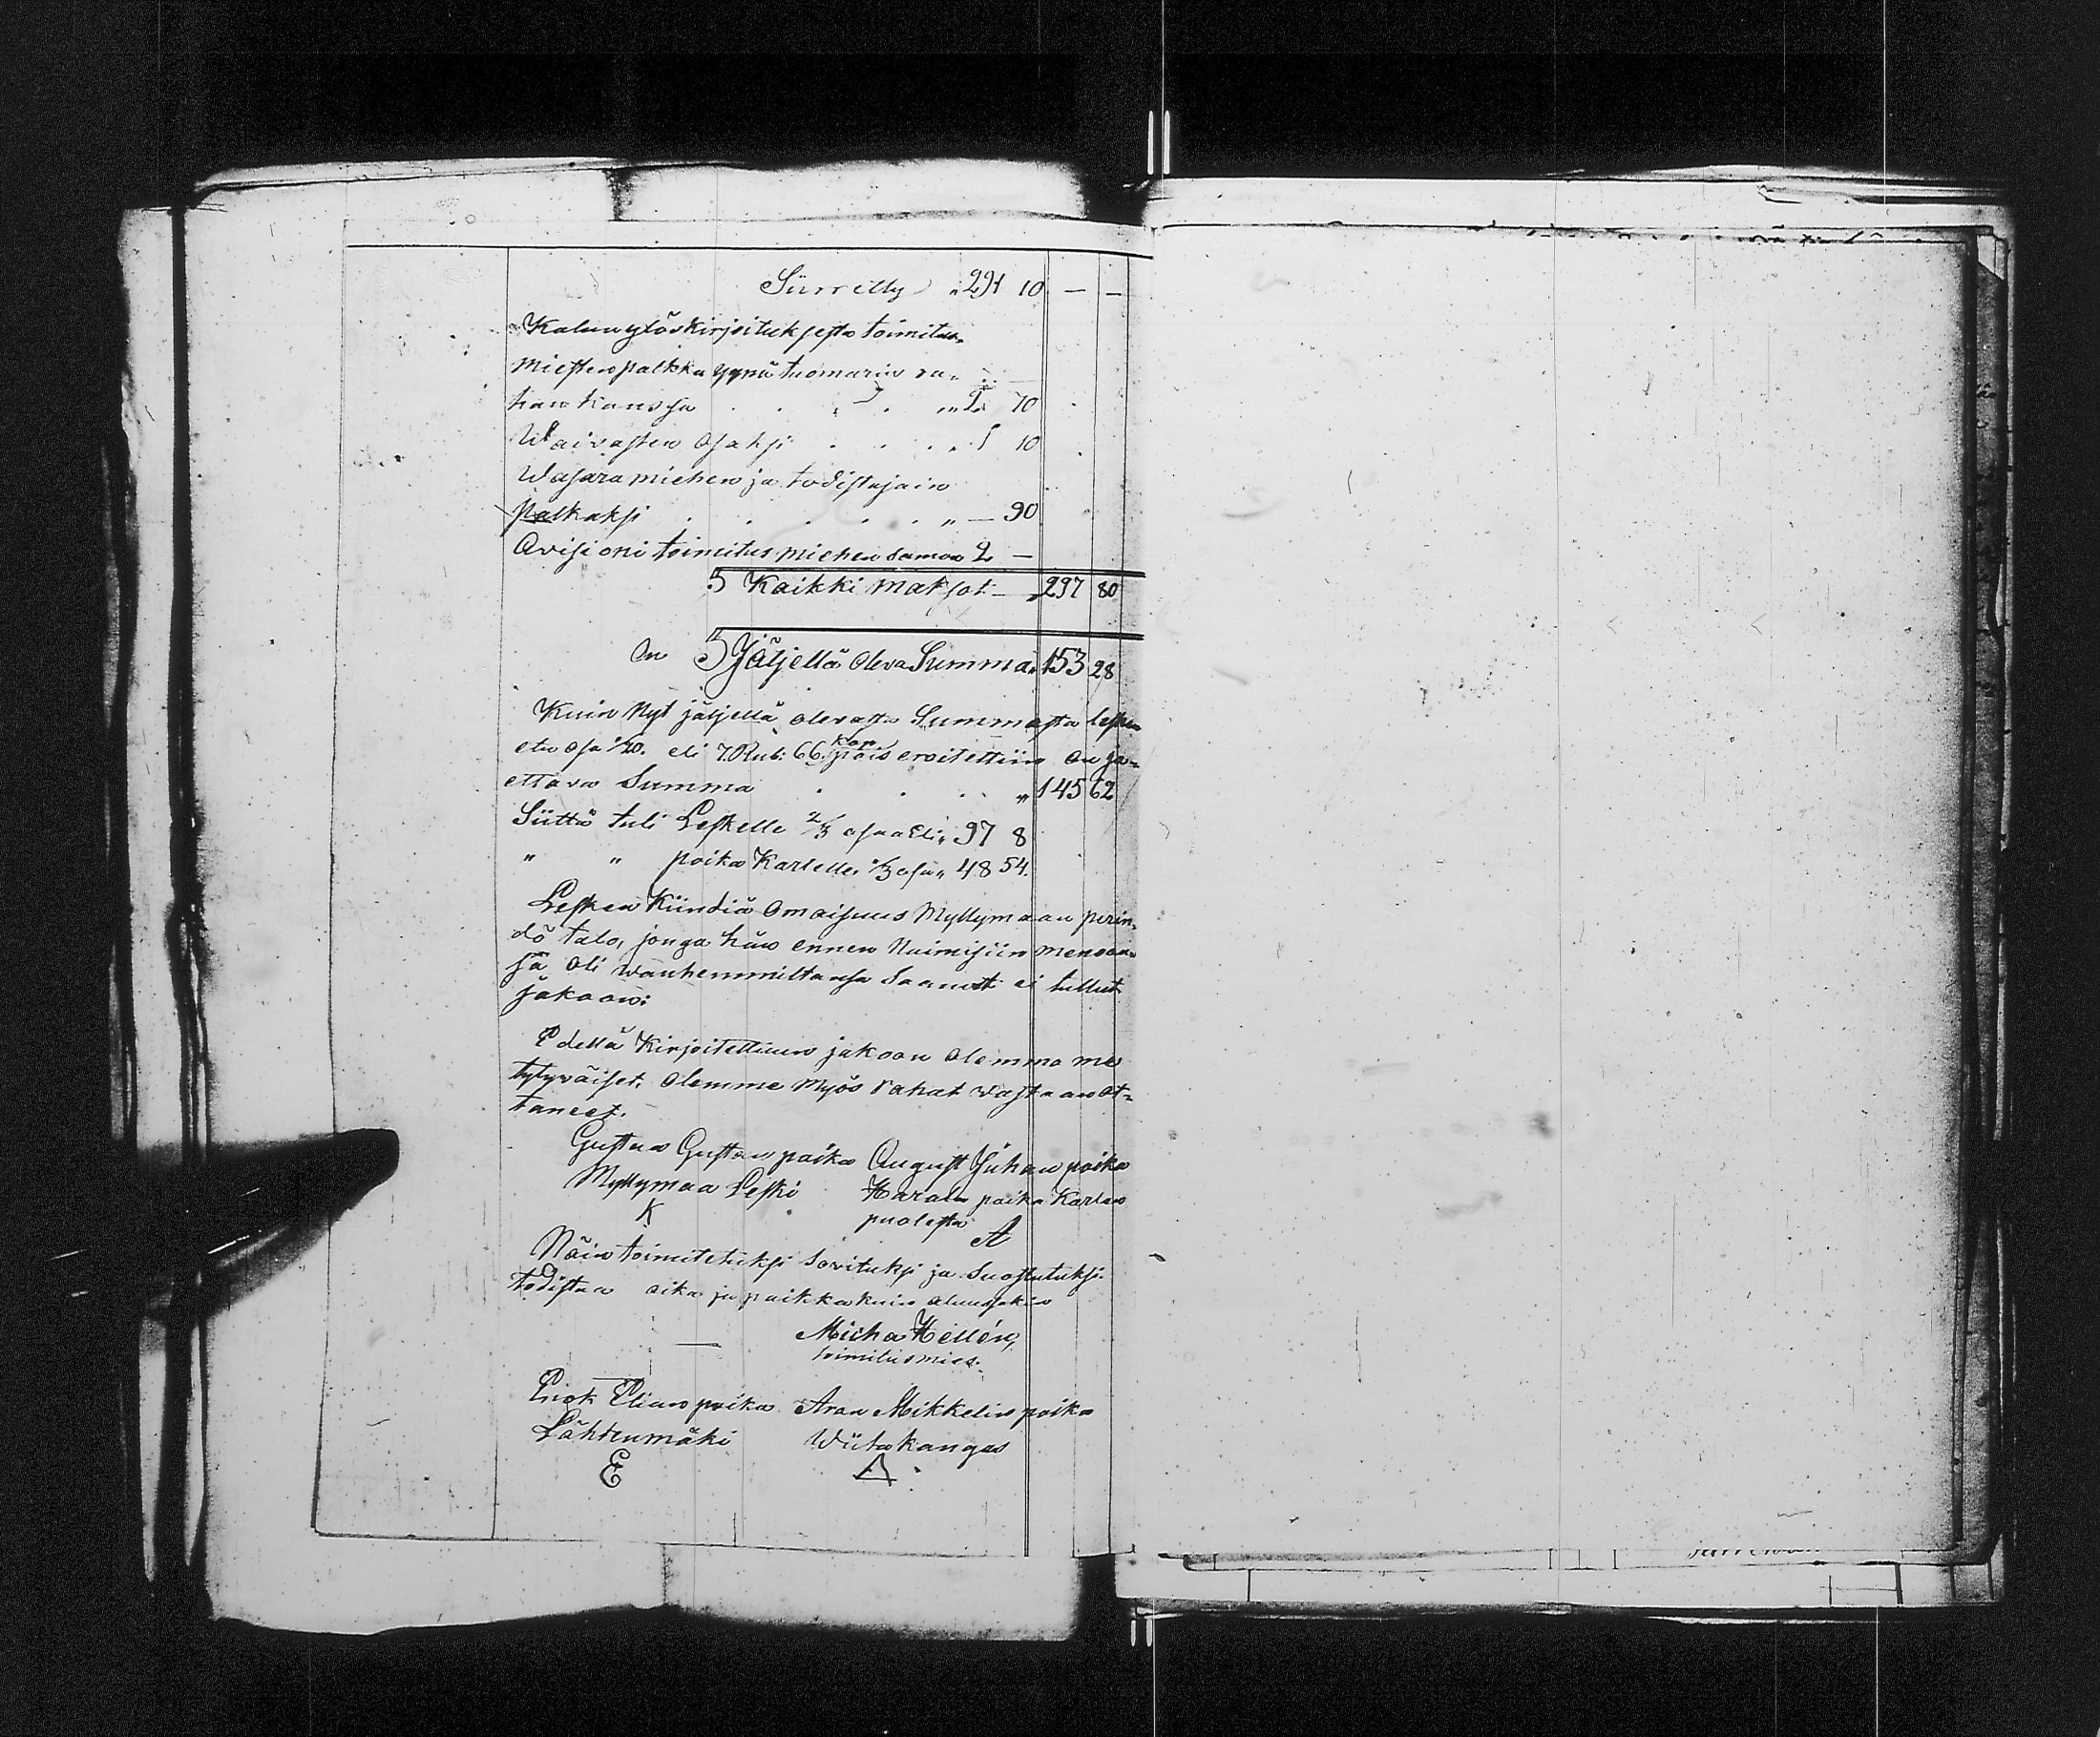 Siirretty " 291 10 — —
Kalun ylöskirjoituksesta toimitus-
miesten palkka ynnä tuomarin ra-
han kanssa . . . . " 2 70
Waivasten osaksi . . . . " 1 10
Wasaramiehen ja todistajain
palkaksi . . . . . " — 90
Avisioni toimitusmiehen samoin 2 —
S Kaikki maksot — " 297 80
On S Jäljellä oleva Summa " 153 28
Kuin Nyt jäljellä olevasta Summasta lesken
etu osa 1/20. eli 7 Rub: 66 Kop. pois eroitettiin on ja-
ettava Summa . . . " 145 62
Siittä tuli Leskelle 2/3 osaa Eli " 97 8
" " poika Karlelle 1/3 osa " 48 54.
Lesken Kiindiä Omaisuus Myllymaan perin-
dö talo, jonga hän ennen Naimisiin menoan-
sä oli wanhemmiltansa Saanut ei tullut
jakoon:
Edellä Kirjoitettuun jakoon olemma me
tytyväiset. olemme Myös Rahat Vastaanot-
taneet.
Gustava Gustavn poika August Juhan poika
Myllymaa Leski Harala poika Karlen
K puolesta
A
Näin toimitetuksi Sovituksi ja Suostutuksi.
todistaa aika ja paikka kuin alussakin
— Micha Hellén,
toimitusmies.
Eriok Elian poika Aran Mikkelin poika
Lähtenmäki Wiitakangas
E A